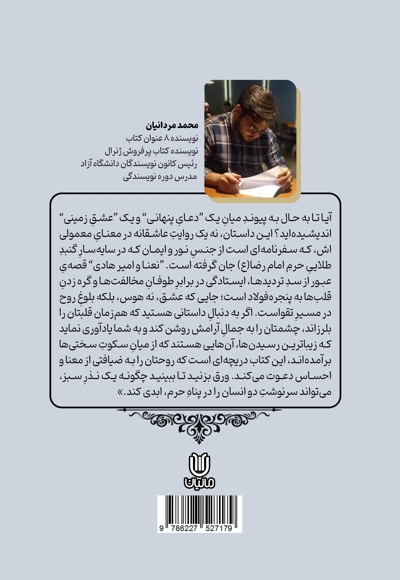 محمد مردانیان
نویسنده ۸ عنوان کتاب
نویسنده کتاب پرفروش ژنرال
رئیس کانون نویسندگان دانشگاه آزاد
مدرس دوره نویسندگی
آیا تا به حال به پیوندِ میانِ یک “دعایِ پنهانی” و یک “عشقِ زمینی”
اندیشیده‌اید؟ این داستان، نه یک روایتِ عاشقانه در معنایِ معمولی
اش، که سفرنامه‌ای است از جنسِ نور و ایمان که در سایه‌سارِ گنبدِ
طلاییِ حرمِ امام رضا(ع) جان گرفته است. “نعنا و امیر هادی” قصه‌یِ
عبور از سدِ تردیدها، ایستادگی در برابرِ طوفانِ مخالفت‌ها و گره زدنِ
قلب‌ها به پنجره‌فولاد است؛ جایی که عشق، نه هوس، بلکه بلوغِ روح
در مسیرِ تقواست. اگر به دنبالِ داستانی هستید که هم‌زمان قلبتان را
بلرزاند، چشمتان را به جمالِ آرامش روشن کند و به شما یادآوری نماید
که زیباترین رسیدن‌ها، آن‌هایی هستند که از میانِ سکوتِ سختی‌ها
برآمده‌اند، این کتاب دریچه‌ای است که روحتان را به ضیافتی از معنا و
احساس دعوت می‌کند. ورق بزنید تا ببینید چگونه یک نذرِ سبز،
می‌تواند سرنوشتِ دو انسان را در پناهِ حرم، ابدی کند.»
ماتیکان
9 786227 527179